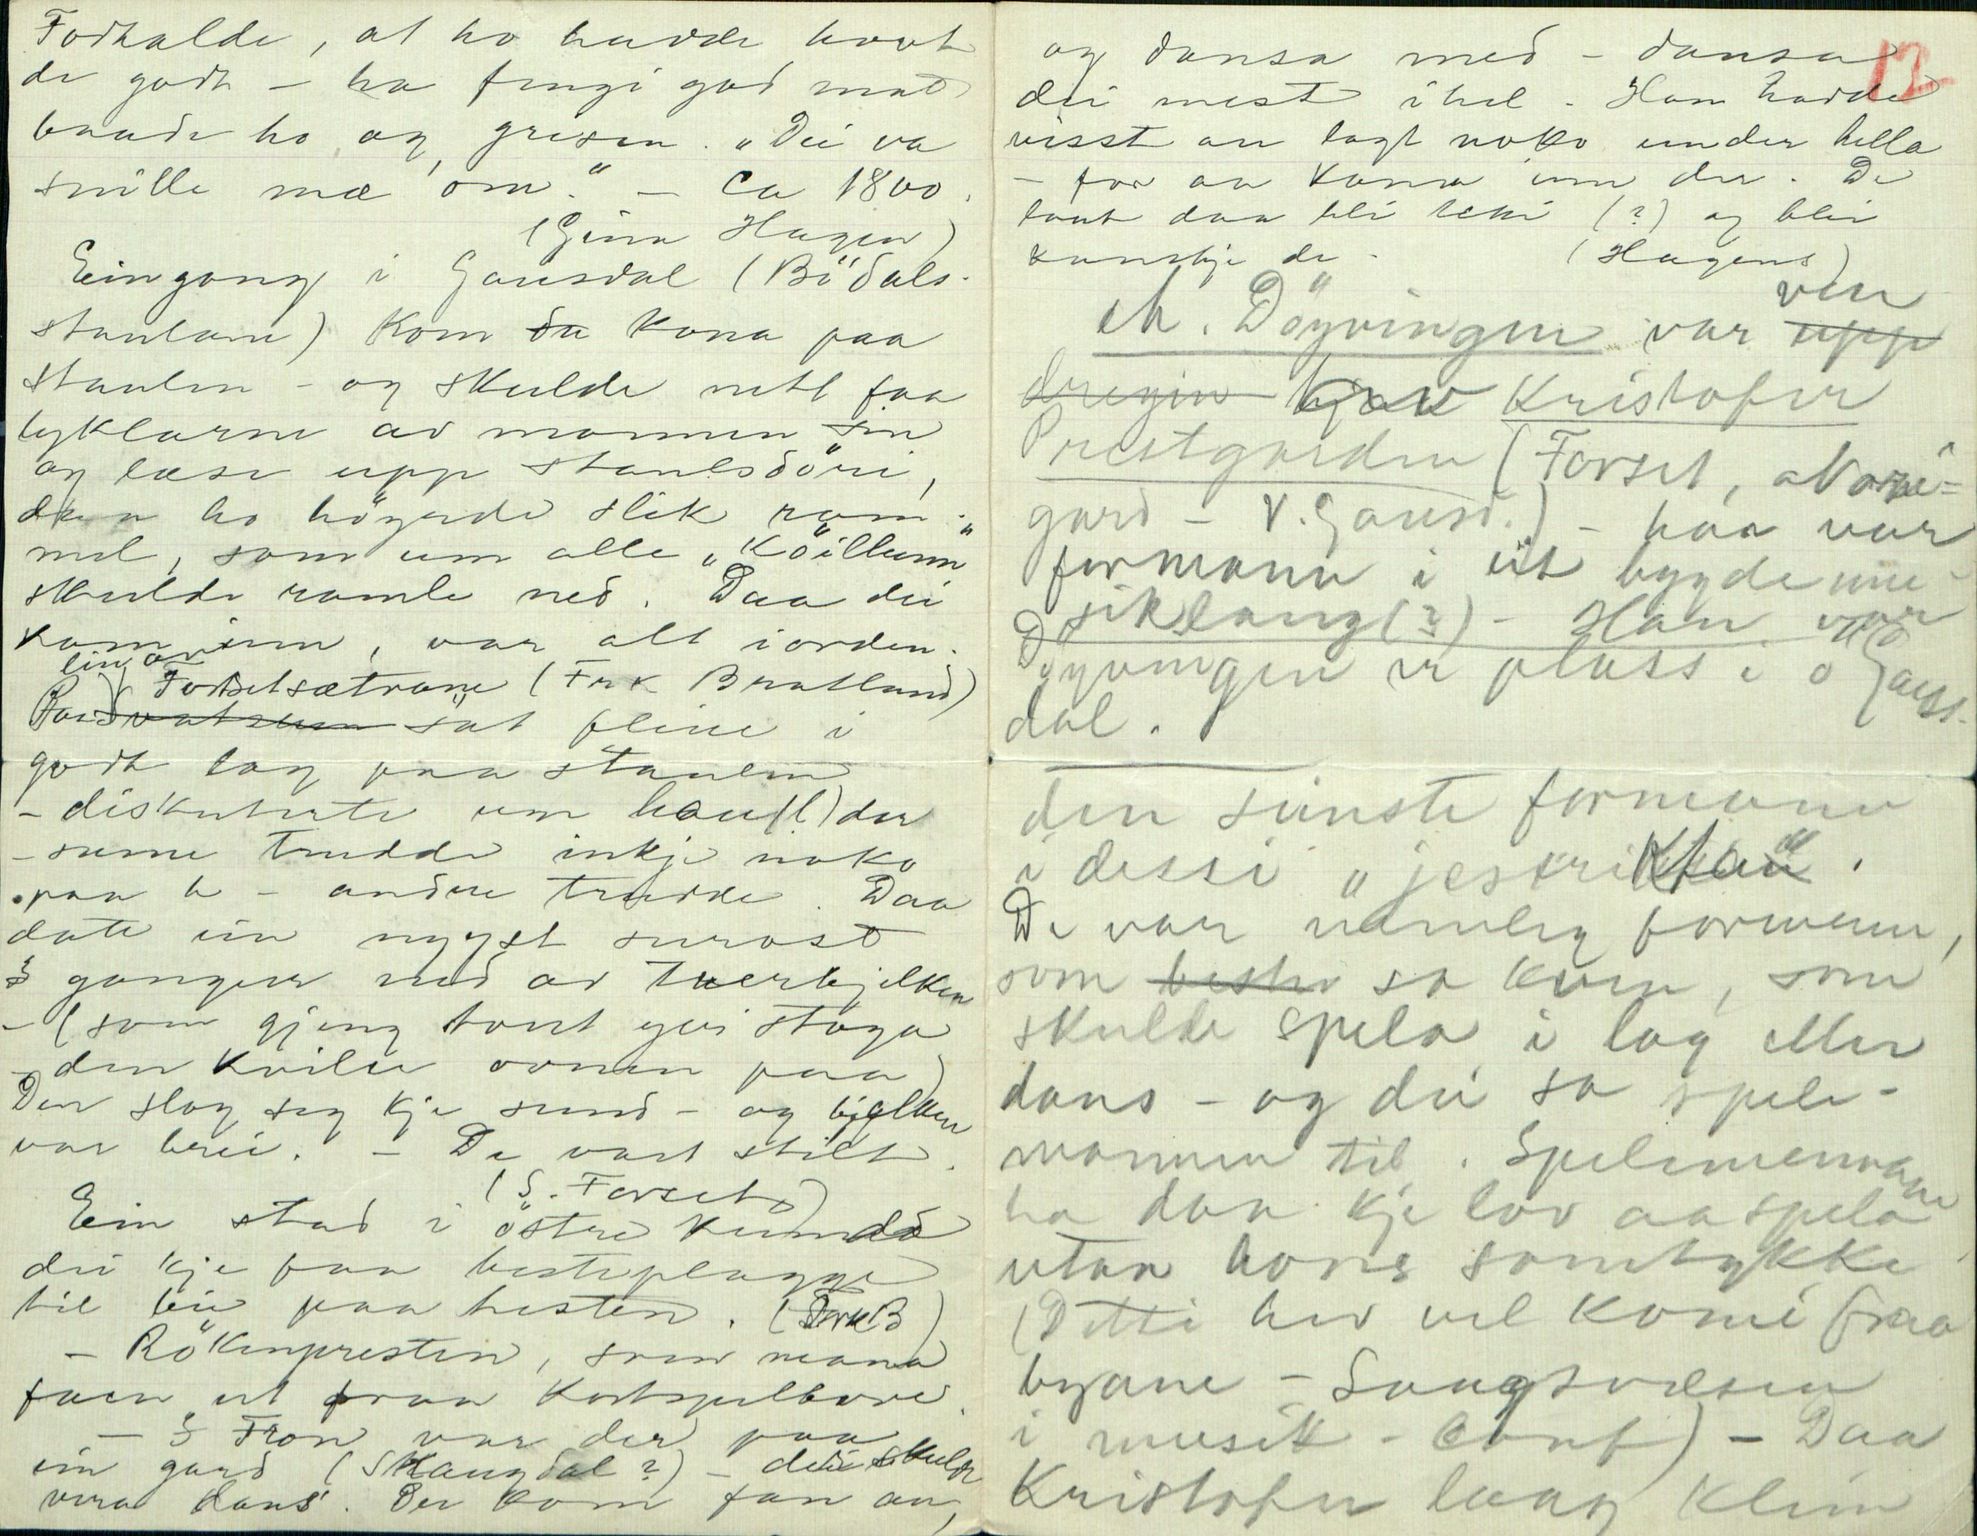 Forhalde, at ho hadde havt
de godt – ha fengi god mat
baade ho og grisen. "Dei va
snille mæ om." – Ca 1800.
(Gina Hagen)
Eingong i Gausdal (Bödals-
staulane) kom da kona paa
staulen – og skulde nétt faa
lyklarne av mannen sin
og læse upp staulsdöri,
daa ho höyrde slik ram-
mel, som um alle "köillunn"
skulde ramle ned. Daa dei
kom inn, var alt i orden.
ein av Forsetsætrane (Frk Bratland)
Paa sat fleire i
godt lag paa staulen
– diskuterte um hau(l)der
– sume trudde inkje noko
paa h – andre trudde. Daa
datt ein nygst surost
3 gonger ned av tverrbjelken
– (som gjeng tvert yvi stoga
– den kviler ovnen paa)
Den slog seg kje sund – og bjelken
var brei. – De vart stilt.
(S. Forseth)
Ein stad i östre kunde
dei kje faa hesteplagge
til bie paa hesten. (Frk B)
– Rökenpresten, som mana
faen ut fraa kortspelbore.
– I Fron var der paa
ein gard (Skaugdal?) – dei skulde
vera dans. Der kom fan an,
12
og dansa med – dansa
dei mest ihel. Han hadde
visst an lagt noko under hella
– for aa koma inn der. De
laut daa bli teki (?) og blei
kanskje de – (Hagens)
ch. Döyvingen var ven
upp
dregin hjaa Kristofer
Prestgarden (Forset,
gard – V. Gausd.) – haa var
formann i eit bygdemu-
siklang(?) – Han var
Döyvingen er plass i ö Gaus-
dal.
den sinste formann
i dessi "jestri
De var nemleg formenn,
som sa kven, som
skulde spela i lag eller
dans – og dei sa spele-
mannen til. Spelemennane
ha daa kje lov aa spela
utan hans samtykke
(Detti her vel komé fraa
byane – Saugstvæsen
i musik – Conf) – Daa
Kristofer laag klein